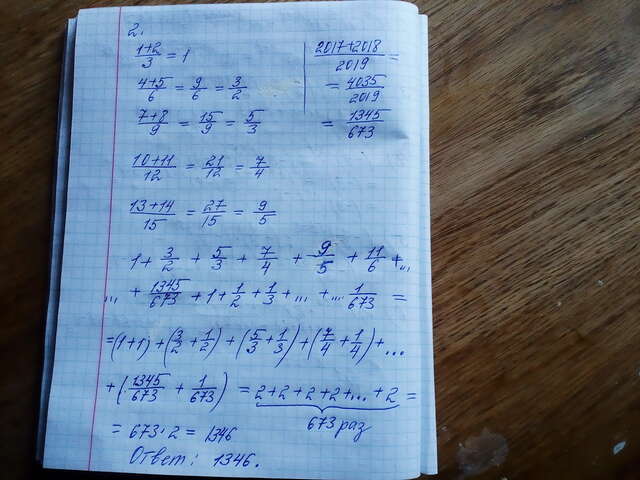 2.
(1+2)/3 = 1
(4+5)/6 = 9/6 = 3/2
(7+8)/9 = 15/9 = 5/3
(10+11)/12 = 21/12 = 7/4
(13+14)/15 = 27/15 = 9/5
(2017+2018)/2019 =
= 4035/2019
= 1345/673
1 + 3/2 + 5/3 + 7/4 + 9/5 + 11/6 + ...
... + 1345/673 + 1 + 1/2 + 1/3 + ... + ... 1/673 =
= (1+1) + (3/2 + 1/2) + (5/3 + 1/3) + (7/4 + 1/4) + ...
+ (1345/673 + 1/673) = 2+2+2+2+...+2 =
673 раз
= 673·2 = 1346
Ответ: 1346.